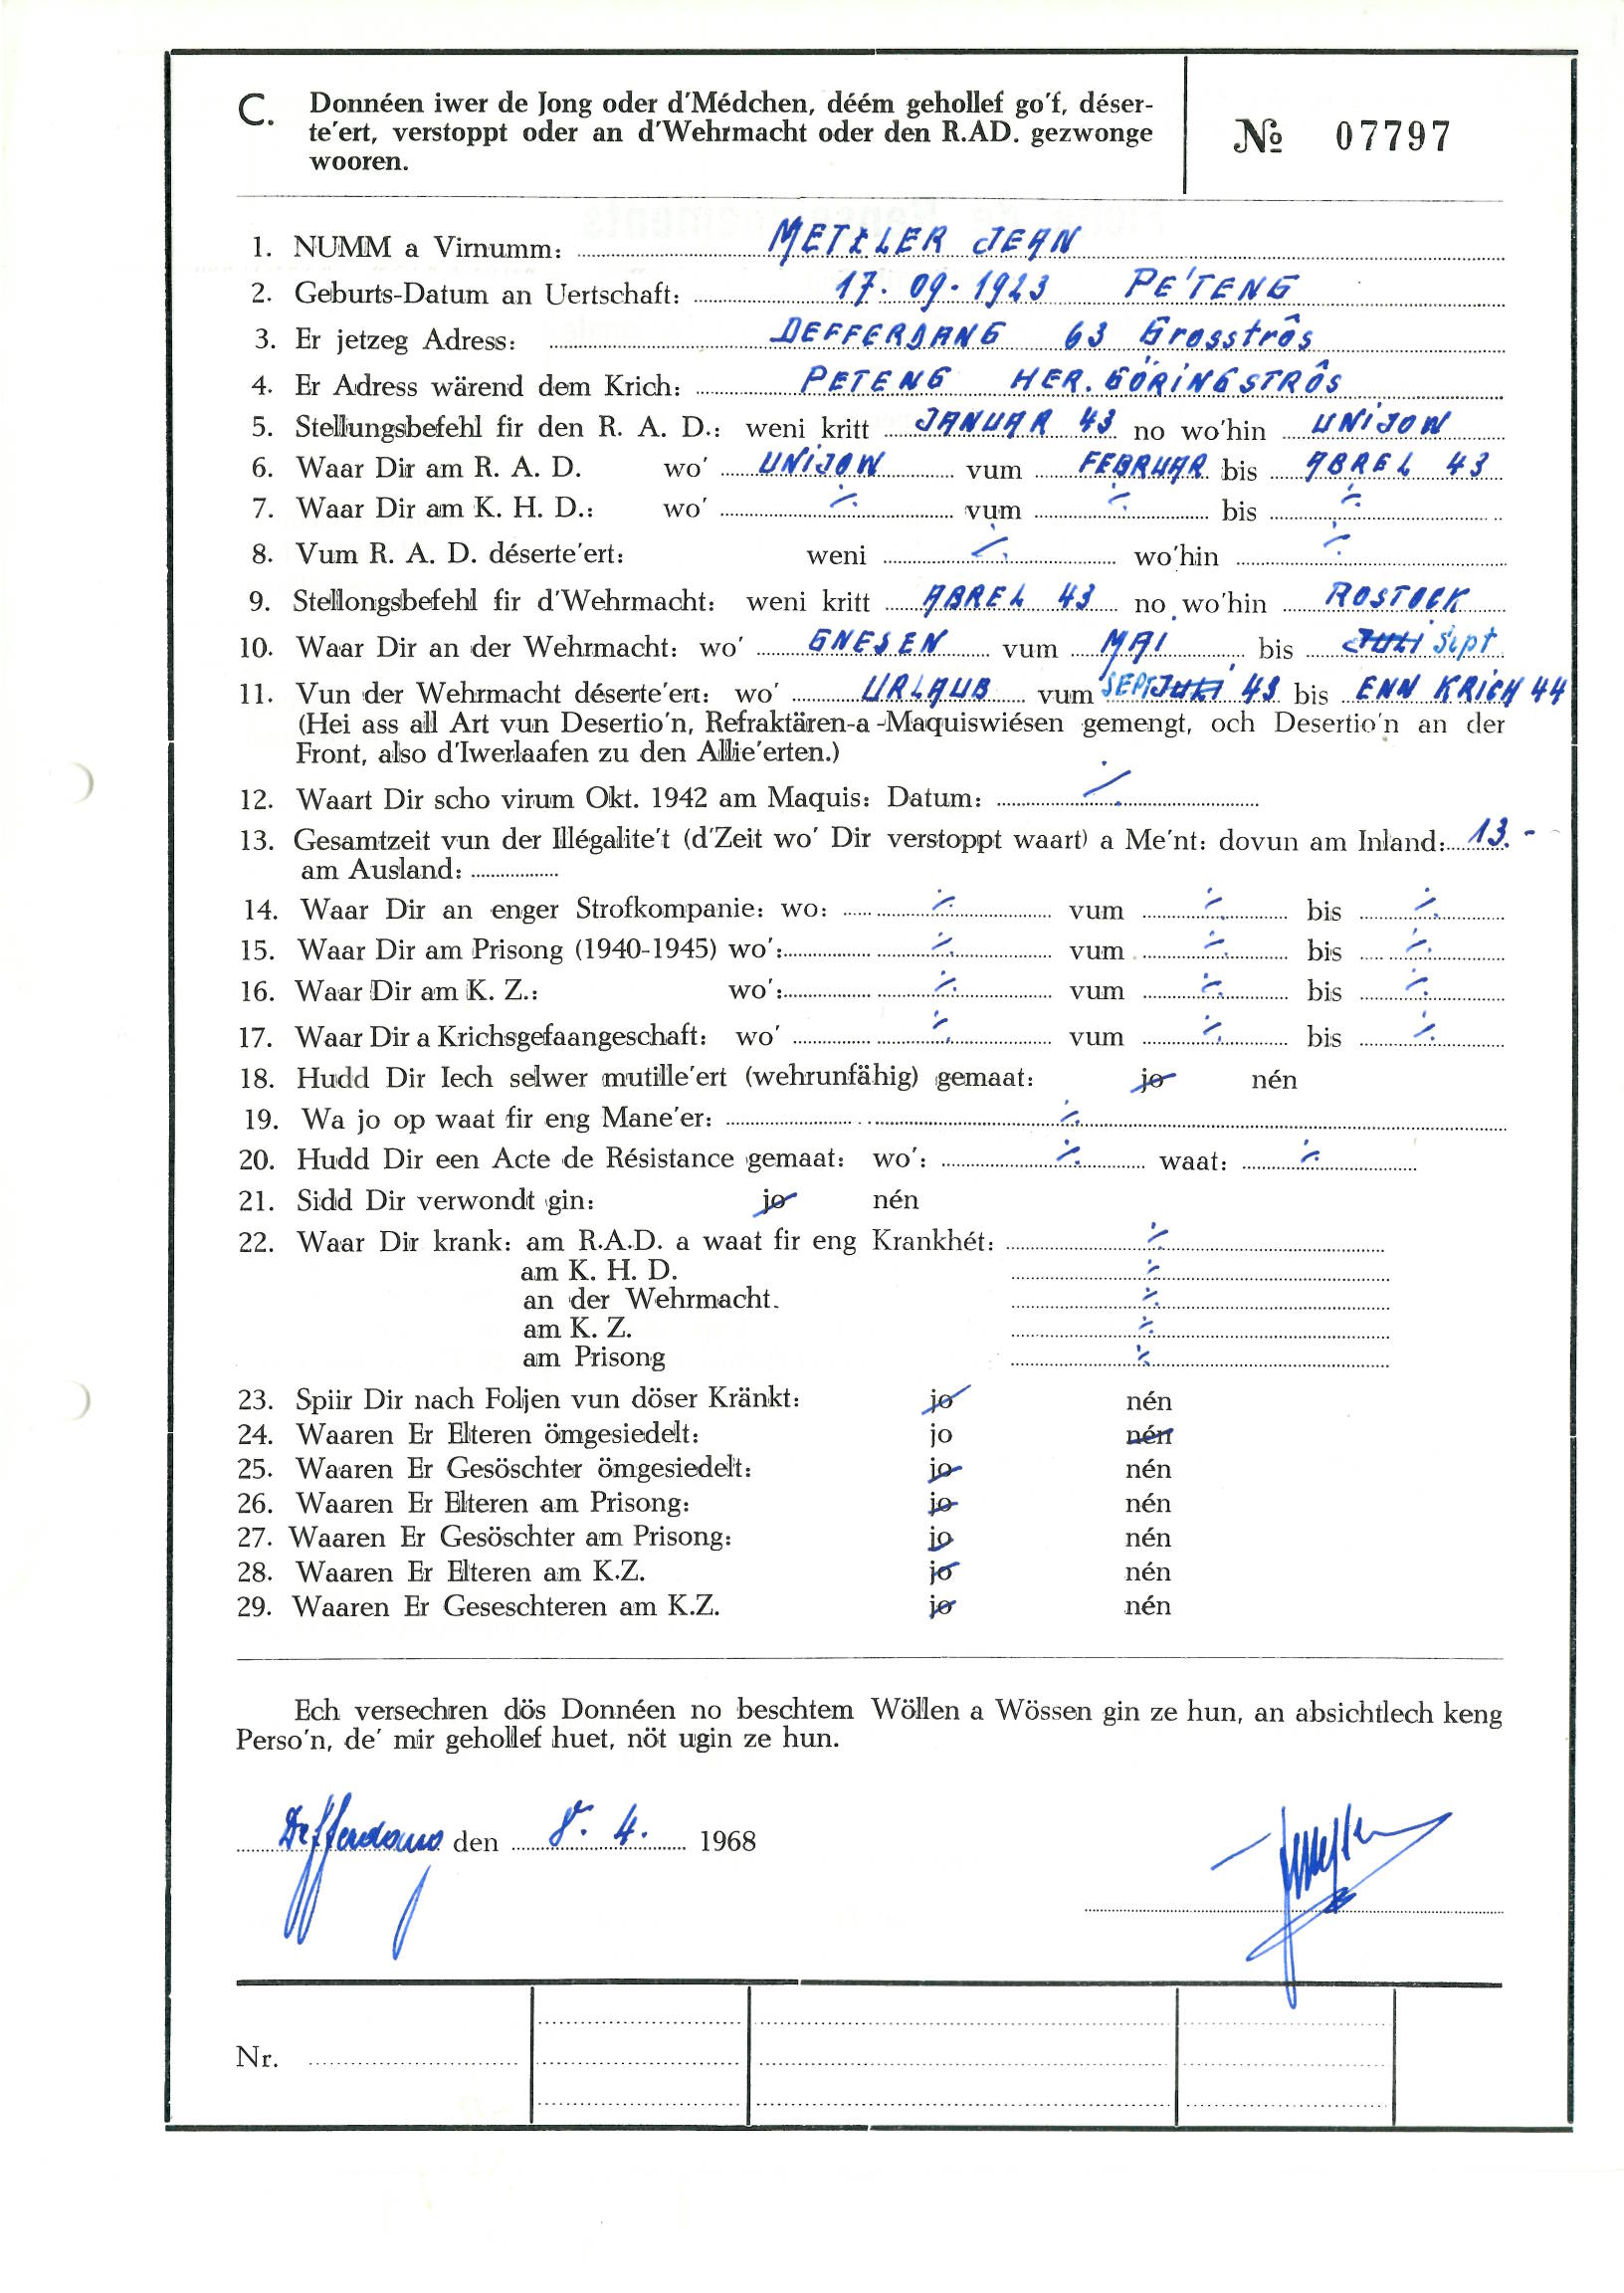 C. Donnéen iwer de Jong oder d'Médchen, déém gehollef go'f, déser-
te'ert, verstoppt oder an d'Wehrmacht oder den R.AD. gezwonge
wooren.
№ 07797
1. NUMM a Virnumm: METZLER JEAN
2. Geburts-Datum an Uertschaft: 17.09.1923 PE'TENG
3. Er jetzeg Adress: DEFFERDANG 63 Grosstrôs
4. Er Adress wärend dem Krich: PETENG HER. GÖRINGSTRÔS
5. Stellungsbefehl fir den R. A. D.: weni kritt JANUAR 43 no wo'hin UNIJOW
6. Waar Dir am R. A. D. wo' UNIJOW vum FEBRUAR bis ABREL 43
7. Waar Dir am K. H. D.: wo' ⁒ vum ⁒ bis ⁒
8. Vum R. A. D. déserte'ert: weni ⁒ wo'hin ⁒
9. Stellongsbefehl fir d'Wehrmacht: weni kritt ABREL 43 no wo'hin ROSTOCK
10. Waar Dir an der Wehrmacht: wo' GNESEN vum MAI bis JULI Sept
11. Vun der Wehrmacht déserte'ert: wo' URLAUB vum SEPT JULI 43 bis ENN KRICH 44
(Hei ass all Art vun Desertio'n, Refraktären-a-Maquiswiésen gemengt, och Desertio'n an der
Front, also d'Iwerlaafen zu den Allie'erten.)
12. Waart Dir scho virum Okt. 1942 am Maquis: Datum: ⁒
13. Gesamtzeit vun der Illégalite't (d'Zeit wo' Dir verstoppt waart) a Me'nt: dovun am Inland: 13.-
am Ausland:
14. Waar Dir an enger Strofkompanie: wo: ⁒ vum ⁒ bis ⁒
15. Waar Dir am Prisong (1940-1945) wo': ⁒ vum ⁒ bis ⁒
16. Waar Dir am K. Z.: wo': ⁒ vum ⁒ bis ⁒
17. Waar Dir a Krichsgefaangeschaft: wo' ⁒ vum ⁒ bis ⁒
18. Hudd Dir Iech selwer mutille'ert (wehrunfähig) gemaat: jo nén
19. Wa jo op waat fir eng Mane'er: ⁒
20. Hudd Dir een Acte de Résistance gemaat: wo': ⁒ waat: ⁒
21. Sidd Dir verwondt gin: jo nén
22. Waar Dir krank: am R.A.D. a waat fir eng Krankhét: ⁒
am K. H. D. ⁒
an der Wehrmacht. ⁒
am K. Z. ⁒
am Prisong ⁒
23. Spiir Dir nach Foljen vun döser Kränkt: jo nén
24. Waaren Er Elteren ömgesiedelt: jo nén
25. Waaren Er Gesöschter ömgesiedelt: jo nén
26. Waaren Er Elteren am Prisong: jo nén
27. Waaren Er Gesöschter am Prisong: jo nén
28. Waaren Er Elteren am K.Z. jo nén
29. Waaren Er Geseschteren am K.Z. jo nén
Ech versechren dös Donnéen no beschtem Wöllen a Wössen gin ze hun, an absichtlech keng
Perso'n, de' mir gehollef huet, nöt ugin ze hun.
Defferdang den 8. 4. 1968
Nr.